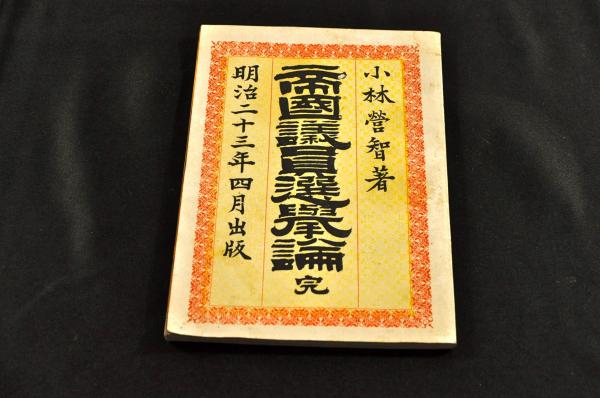 小林營智著
帝國議員選擧論
完
明治二十三年四月出版